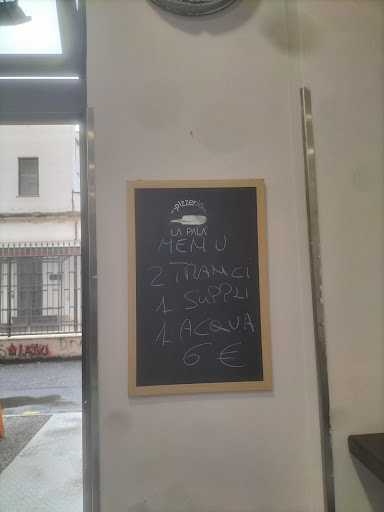 pizzeria
LA PALA
MENU
2 TRANCI
1 SUPPLI
1 ACQUA
6 €
LAZIO